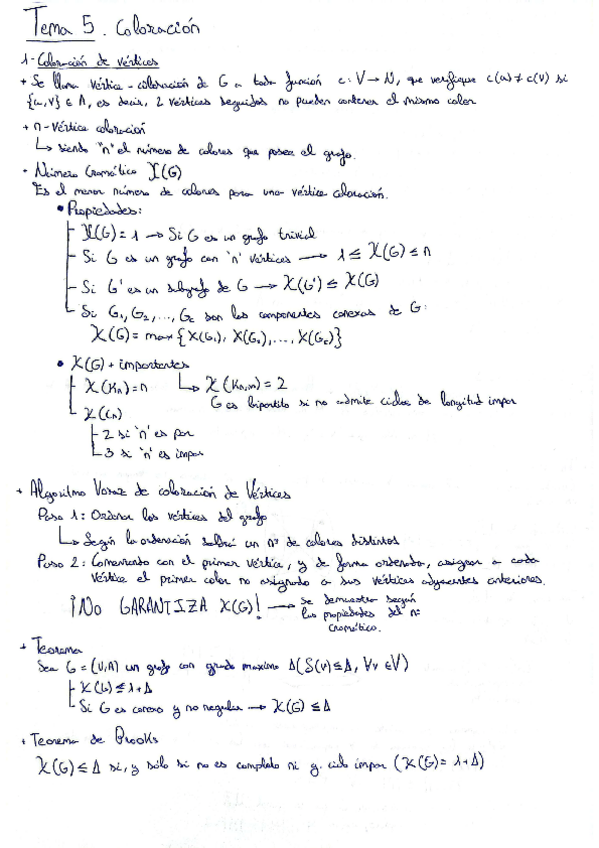 Tema 5. Coloración
1-Coloración de vértices
+ Se llama vértice-coloración de G a toda función c: V → N, que verifique c(u) ≠ c(v) si
{u,v} ∈ A, es decir, 2 vértices seguidos no pueden contener el mismo color
+ n-vértice coloración
↳ siendo "n" el número de colores que posea el grafo.
- Número Cromático X(G)
Es el menor número de colores para una vértice coloración.
• Propiedades:
X(G) = 1 → Si G es un grafo trivial
Si G es un grafo con 'n' vértices → 1 ≤ X(G) ≤ n
Si G' es un subgrafo de G → X(G') ≤ X(G)
Si G₁, G₂, ..., Gc son las componentes conexas de G:
X(G) = max {X(G₁), X(G₂), ..., X(Gc)}
• X(G) + importantes
X(Kn) = n ↳ X(Kn,m) = 2
G es bipartito si no admite ciclos de longitud impar
X(Cn)
2 si 'n' es par
3 si 'n' es impar
+ Algoritmo Voraz de coloración de Vértices
Paso 1: Ordenar los vértices del grafo
↳ Según la ordenación saldrá un nº de colores distintos
Paso 2: Comenzando con el primer vértice, y de forma ordenada, asignar a cada
vértice el primer color no asignado a sus vértices adyacentes anteriores.
¡NO GARANTIZA X(G)! → se demuestra según
las propiedades del nº
cromático.
+ Teorema
Sea G = (V,A) un grafo con grado maximo Δ(δ(v) ≤ Δ, ∀v ∈ V)
X(G) ≤ 1+Δ
Si G es conexo y no regular → X(G) ≤ Δ
+ Teorema de Brooks
X(G) ≤ Δ si, y sólo si no es completo ni g. ciclo impar (X(G) = 1+Δ)